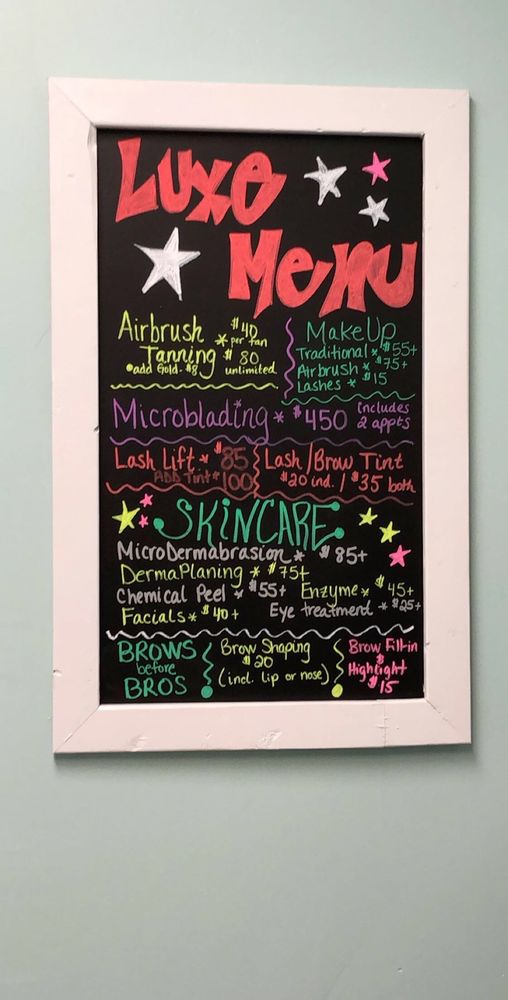 Luxe
Menu
Airbrush * $40 per tan
Tanning $80 unlimited
•add Gold - $8
MakeUp
Traditional * $55+
Airbrush * $75+
Lashes * $15
Microblading * $450 Includes 2 appts
Lash Lift * $85
ADD Tint * $100
Lash/Brow Tint
$20 ind. / $35 both
SKINCARE
MicroDermabrasion * $85+
DermaPlaning * $75+
Chemical Peel * $55+ Enzyme * $45+
Facials * $40+ Eye treatment * $25+
BROWS
before
BROS
Brow Shaping
$20
(incl. lip or nose)
Brow Fill-in
&
Highlight
$15